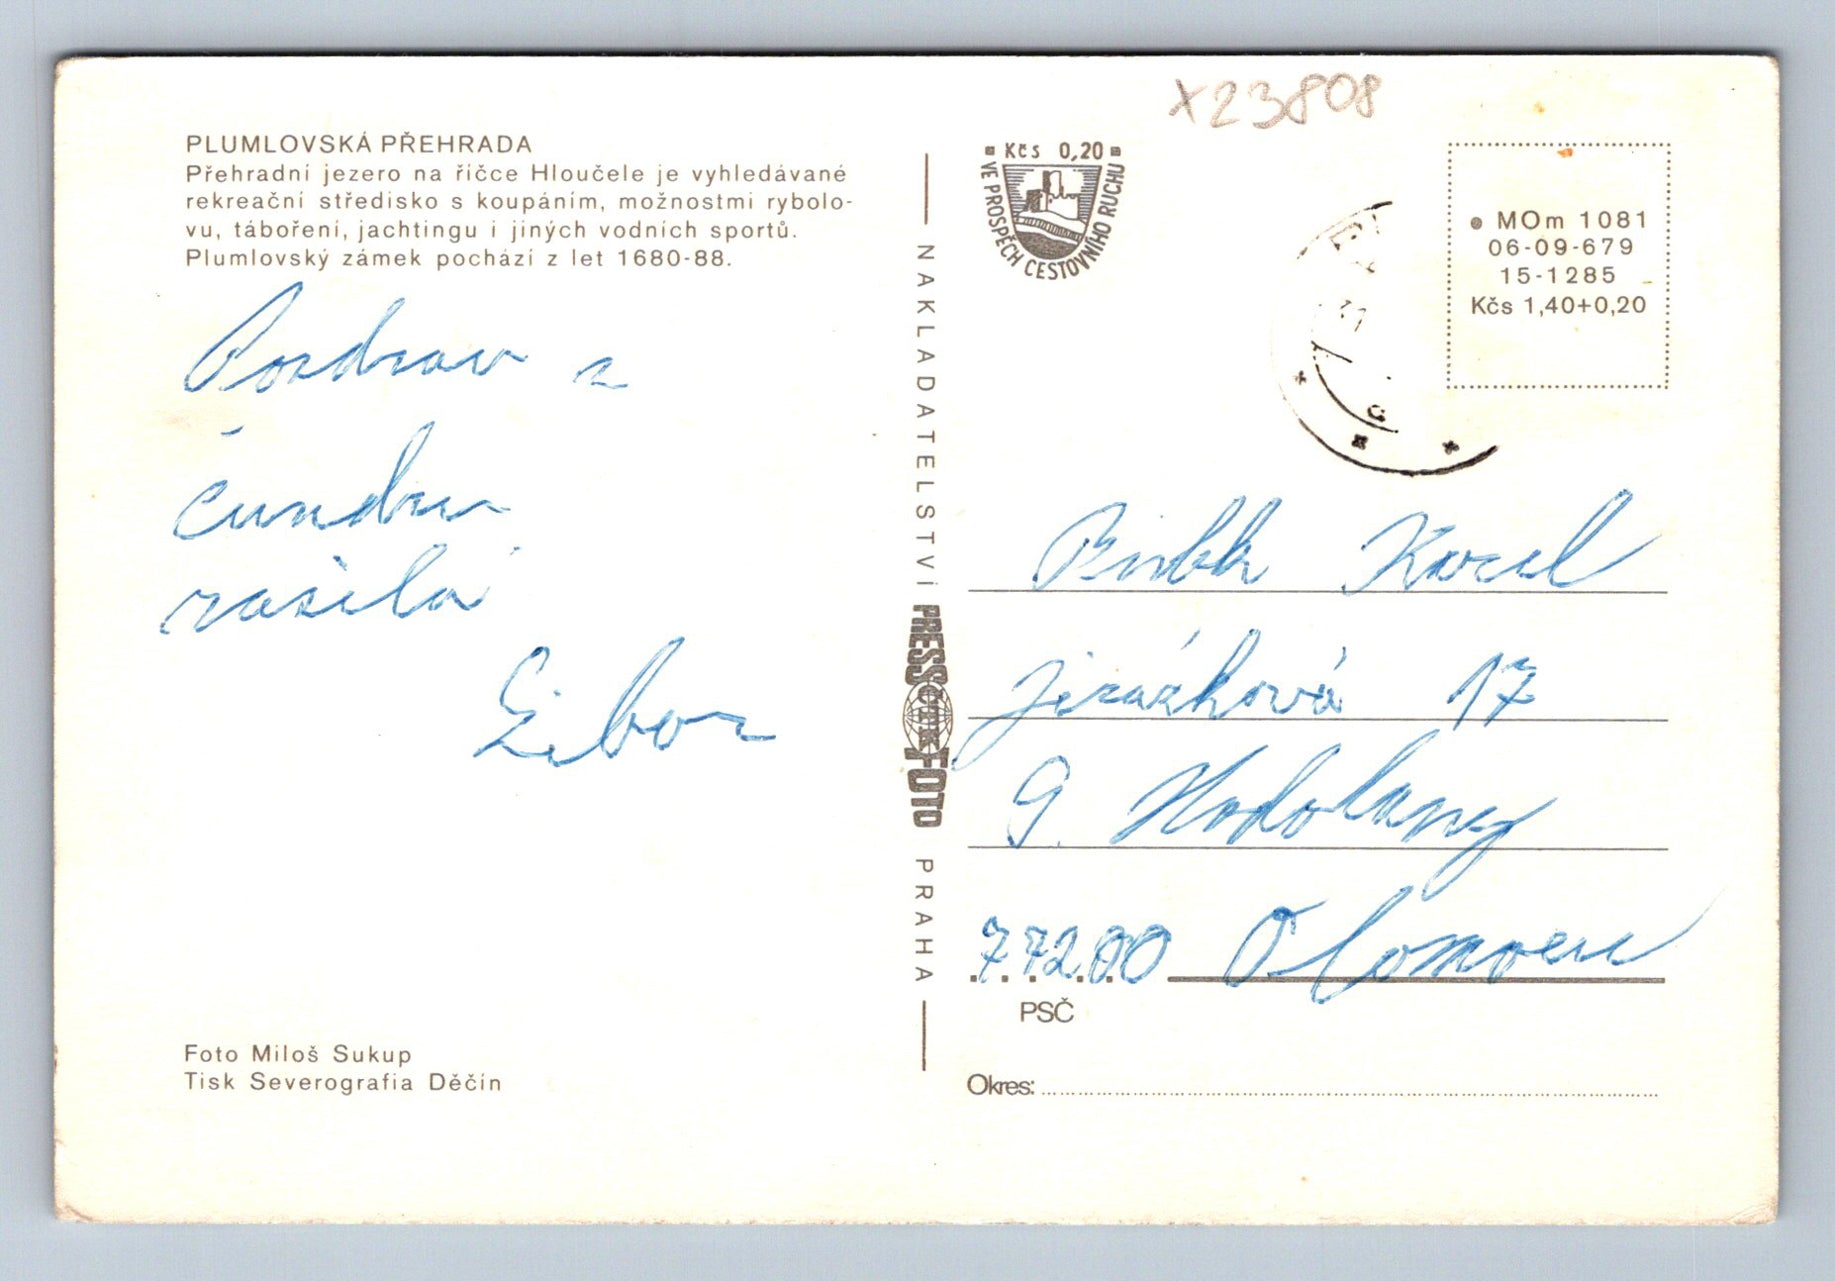 x23808
PLUMLOVSKÁ PŘEHRADA
Přehradní jezero na říčce Hloučele je vyhledávané
rekreační středisko s koupáním, možnostmi rybolo-
vu, táboření, jachtingu i jiných vodních sportů.
Plumlovský zámek pochází z let 1680-88.
Pozdrav z
čundru
zasílá
Libor
Foto Miloš Sukup
Tisk Severografia Děčín
NAKLADATELSTVÍ PRESSFOTO PRAHA
ČTK
Kčs 0,20
VE PROSPĚCH CESTOVNÍHO RUCHU
MOm 1081
06-09-679
15-1285
Kčs 1,40+0,20
Karel
Jirázková 17
9. Hodolany
77200 Olomouc
PSČ
Okres: